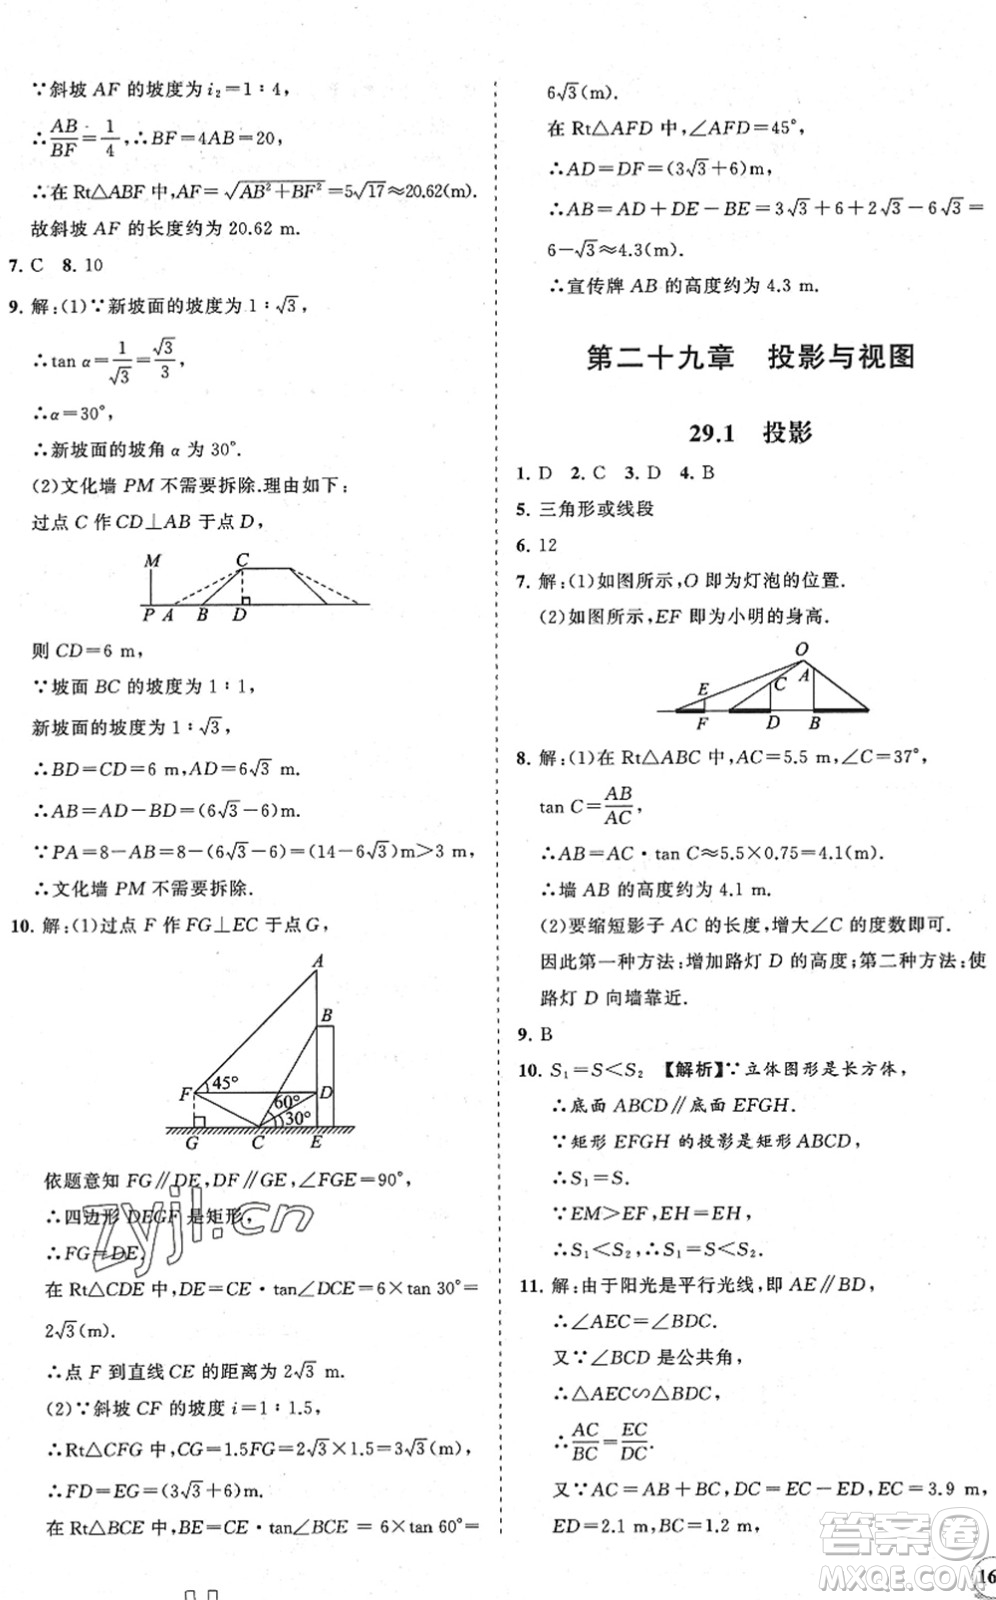 ∵斜坡 AF 的坡度为 i₂=1∶4，
∴AB/BF=1/4，∴BF=4AB=20，
∴在 Rt△ABF 中，AF=√(AB²+BF²)=5√17≈20.62(m).
故斜坡 AF 的长度约为 20.62 m.
7. C 8. 10
9. 解：(1)∵新坡面的坡度为 1∶√3，
∴tan α=1/√3=√3/3，
∴α=30°，
∴新坡面的坡角 α 为 30°.
(2)文化墙 PM 不需要拆除.理由如下：
过点 C 作 CD⊥AB 于点 D，
M C
P A B D
则 CD=6 m，
∵坡面 BC 的坡度为 1∶1，
新坡面的坡度为 1∶√3，
∴BD=CD=6 m，AD=6√3 m.
∴AB=AD−BD=(6√3−6)m.
∵PA=8−AB=8−(6√3−6)=(14−6√3)m>3 m，
∴文化墙 PM 不需要拆除.
10. 解：(1)过点 F 作 FG⊥EC 于点 G，
A
B
F 45° D
60°
30°
G C E
依题意知 FG∥DE，DF∥GE，∠FGE=90°，
∴四边形 DEGF 是矩形，
∴FG=DE.
在 Rt△CDE 中，DE=CE·tan∠DCE=6×tan 30°=
2√3(m).
∴点 F 到直线 CE 的距离为 2√3 m.
(2)∵斜坡 CF 的坡度 i=1∶1.5，
∴Rt△CFG 中，CG=1.5FG=2√3×1.5=3√3(m)，
∴FD=EG=(3√3+6)m.
在 Rt△BCE 中，BE=CE·tan∠BCE=6×tan 60°=
6√3(m).
在 Rt△AFD 中，∠AFD=45°，
∴AD=DF=(3√3+6)m.
∴AB=AD+DE−BE=3√3+6+2√3−6√3=
6−√3≈4.3(m).
∴宣传牌 AB 的高度约为 4.3 m.
第二十九章 投影与视图
29.1 投影
1. D 2. C 3. D 4. B
5. 三角形或线段
6. 12
7. 解：(1)如图所示，O 即为灯泡的位置.
(2)如图所示，EF 即为小明的身高.
O
E C A
F D B
8. 解：(1)在 Rt△ABC 中，AC=5.5 m，∠C=37°，
tan C=AB/AC，
∴AB=AC·tan C≈5.5×0.75≈4.1(m).
∴墙 AB 的高度约为 4.1 m.
(2)要缩短影子 AC 的长度，增大∠C 的度数即可.
因此第一种方法：增加路灯 D 的高度；第二种方法：使
路灯 D 向墙靠近.
9. B
10. S₁=S<S₂ 【解析】∵立体图形是长方体，
∴底面 ABCD∥底面 EFGH.
∵矩形 EFGH 的投影是矩形 ABCD，
∴S₁=S.
∵EM>EF，EH=EH，
∴S₁<S₂，∴S₁=S<S₂.
11. 解：由于阳光是平行光线，即 AE∥BD，
∴∠AEC=∠BDC.
又∵∠BCD 是公共角，
∴△AEC∽△BDC.
∴AC/BC=EC/DC.
又∵AC=AB+BC，DC=EC−ED，EC=3.9 m，
ED=2.1 m，BC=1.2 m，
zyjl.cn
答案圈
MXQE.COM
16